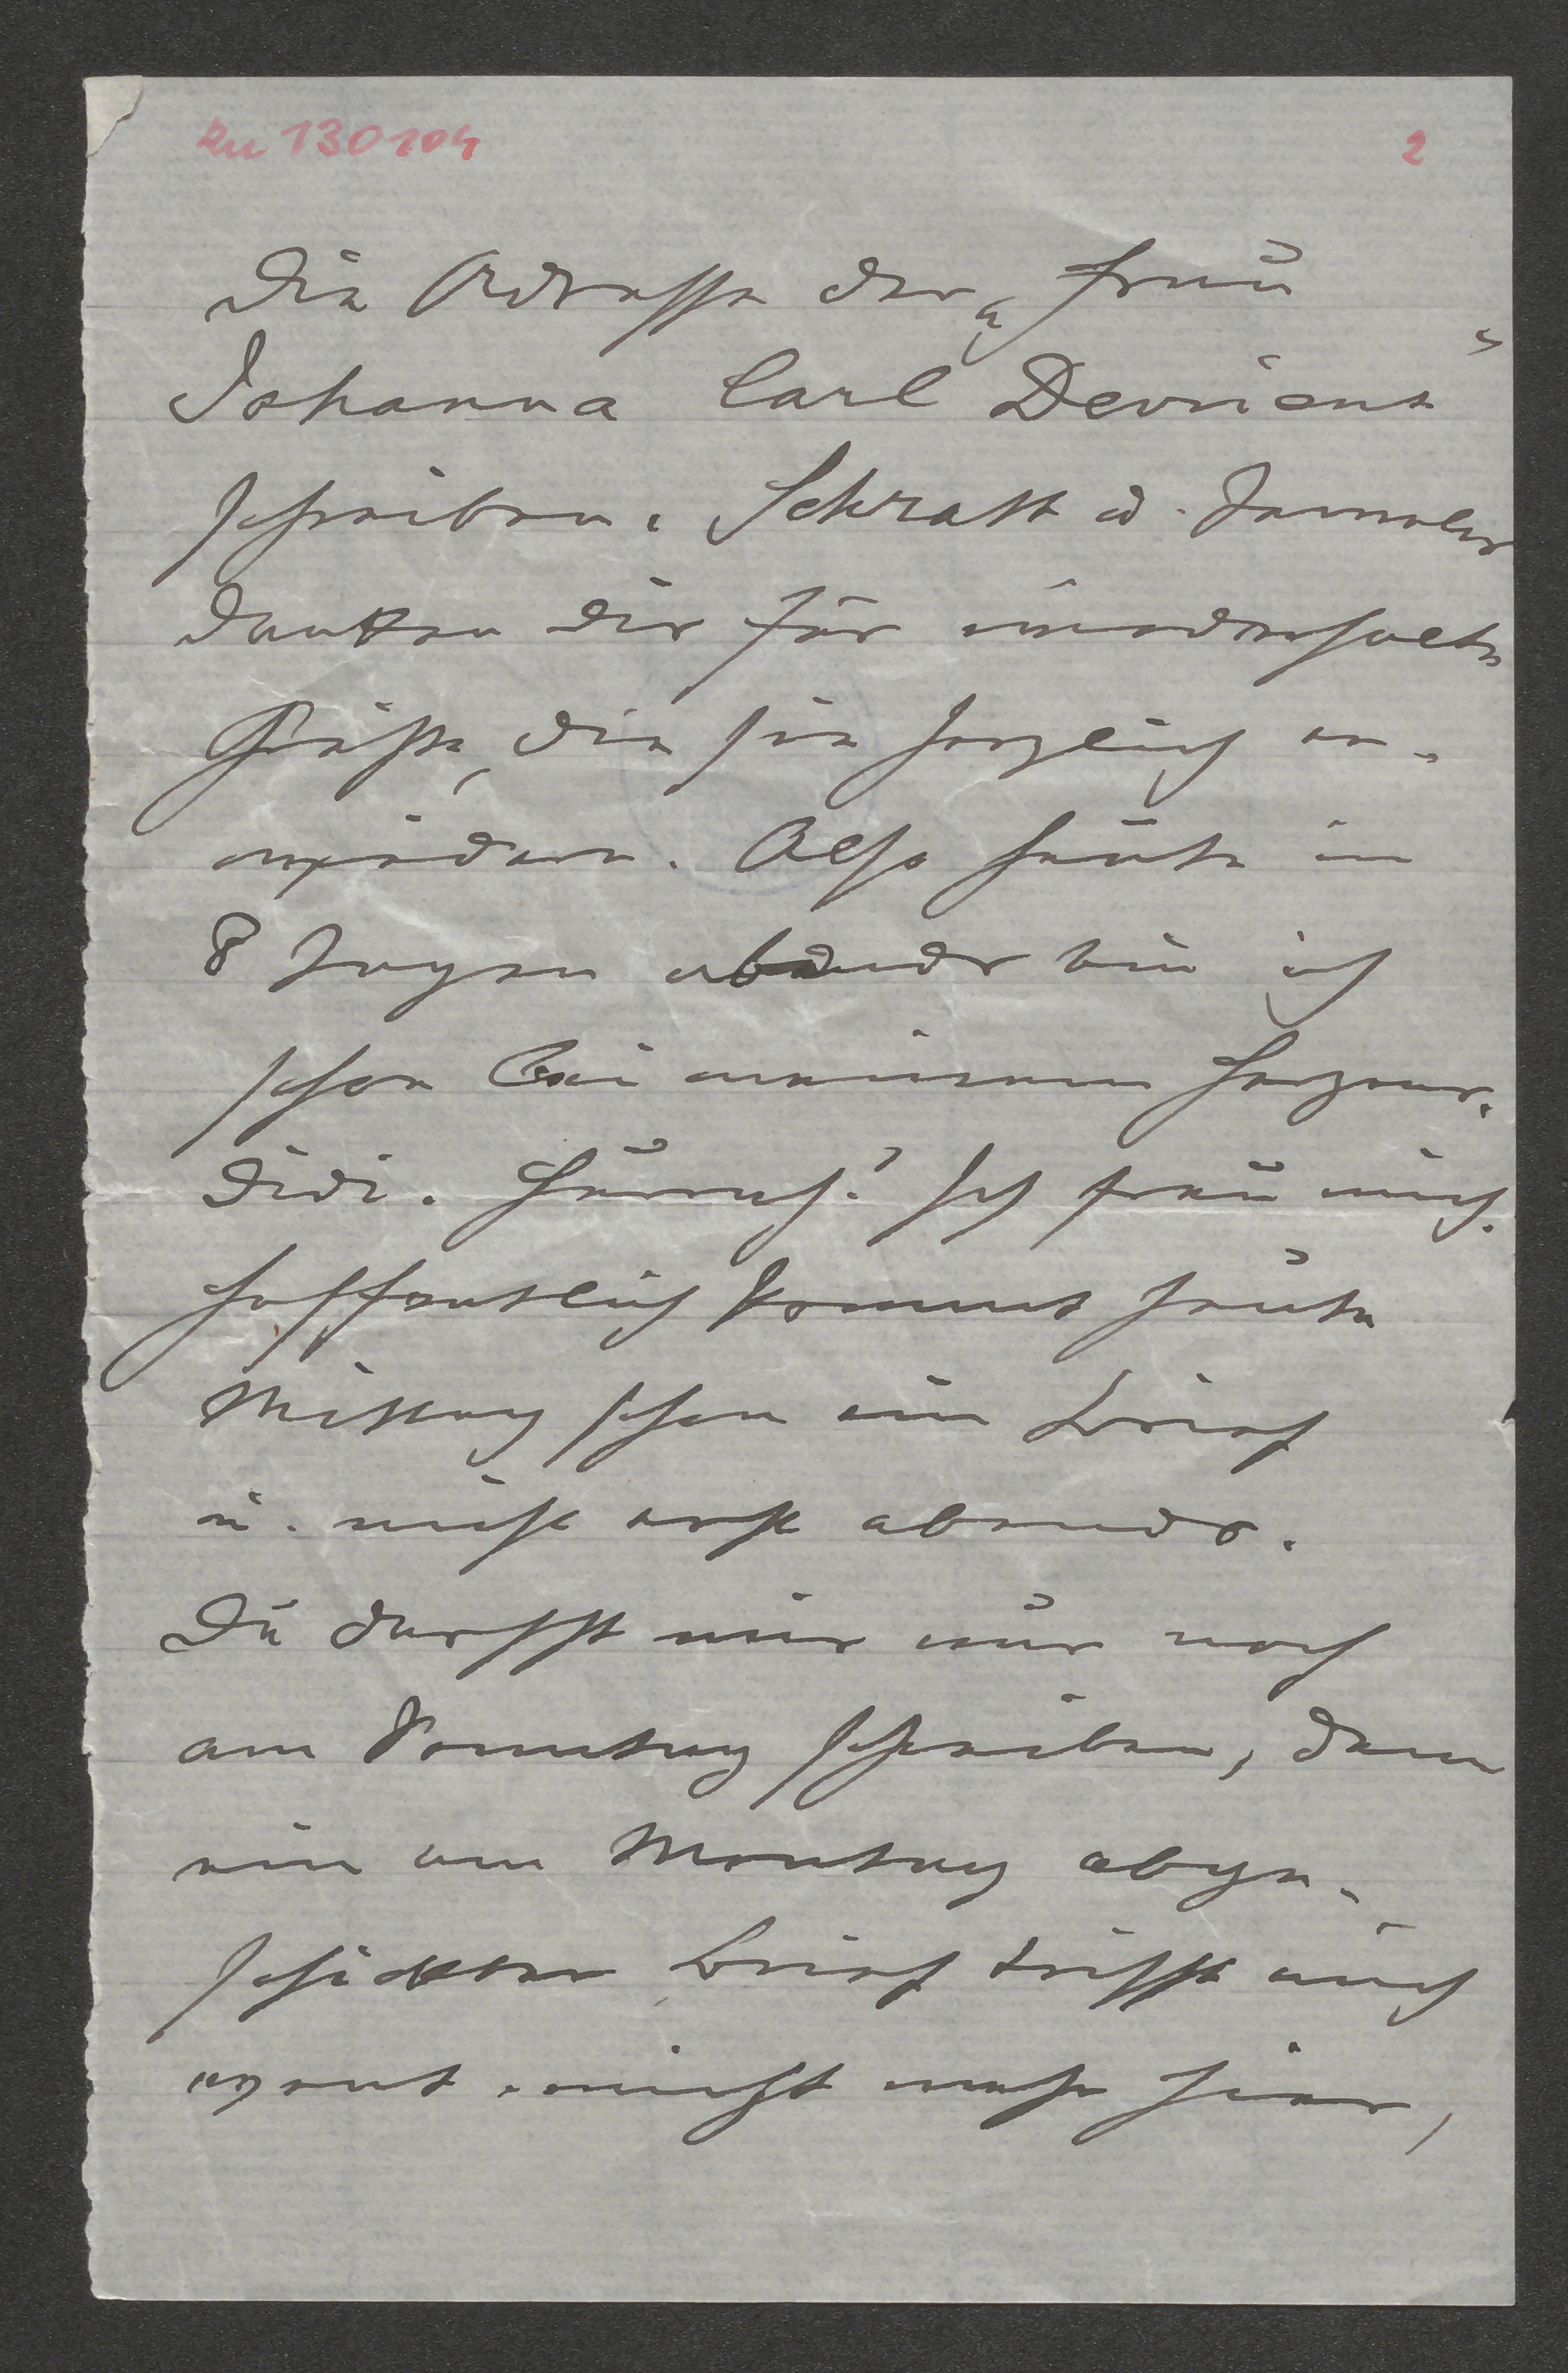 Ru 130104
2
Die Adresse der „Frau
Johanna Carl Devrient“
schreiben. Schratt u.
danken dir für wiederholte
Grüße, die sie herzlich er-
wiedern. Also heute in
8 Tagen abends bin ich
schon bei meinem Herzens-
didi. Hurrah! Ich freu mich.
Hoffentlich kommt heute
Mittag schon ein Brief
u. nicht erst abends.
Du darfst mir nur noch
am Sonntag schreiben, denn
ein am Montag abge-
schickter Brief trifft mich
event. nicht mehr hier,